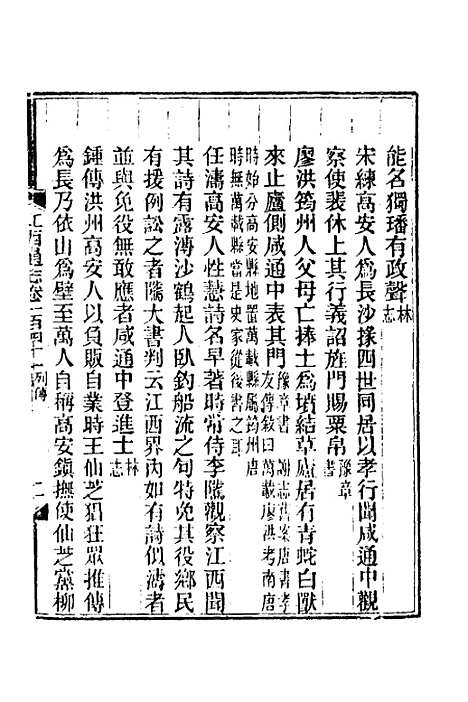 能名獨璠有政聲林志
宋練高安人爲長沙掾四世同居以孝行聞咸通中觀
察使裴休上其行義詔旌門賜粟帛豫章書
廖洪筠州人父母亡捧土爲墳結草廬居有青蛇白獸
來止廬側咸通中表其門豫章書 謝志舊案唐書孝友傳敍曰萬載廖洪考南唐
時始分高安縣地置萬載縣屬筠州唐時無萬載縣當是史家從後書之耳
任濤高安人性慧詩名早著時常侍李隲觀察江西聞
其詩有露漙沙鶴起人臥釣船流之句特免其役鄉民
有援例訟之者隲大書判云江西界內如有詩似濤者
並與免役無敢應者咸通中登進士林志
鍾傳洪州高安人以負販自業時王仙芝猖狂眾推傳
爲長乃依山爲壁至萬人自稱高安鎮撫使仙芝黨柳
江西通志卷一百四十一 列傳 二